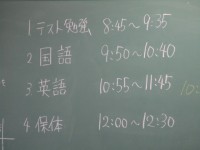 1 テスト勉強 8:45〜9:35
2 国語 9:50〜10:40
3. 英語 10:55〜11:45
4 保体 12:00〜12:30